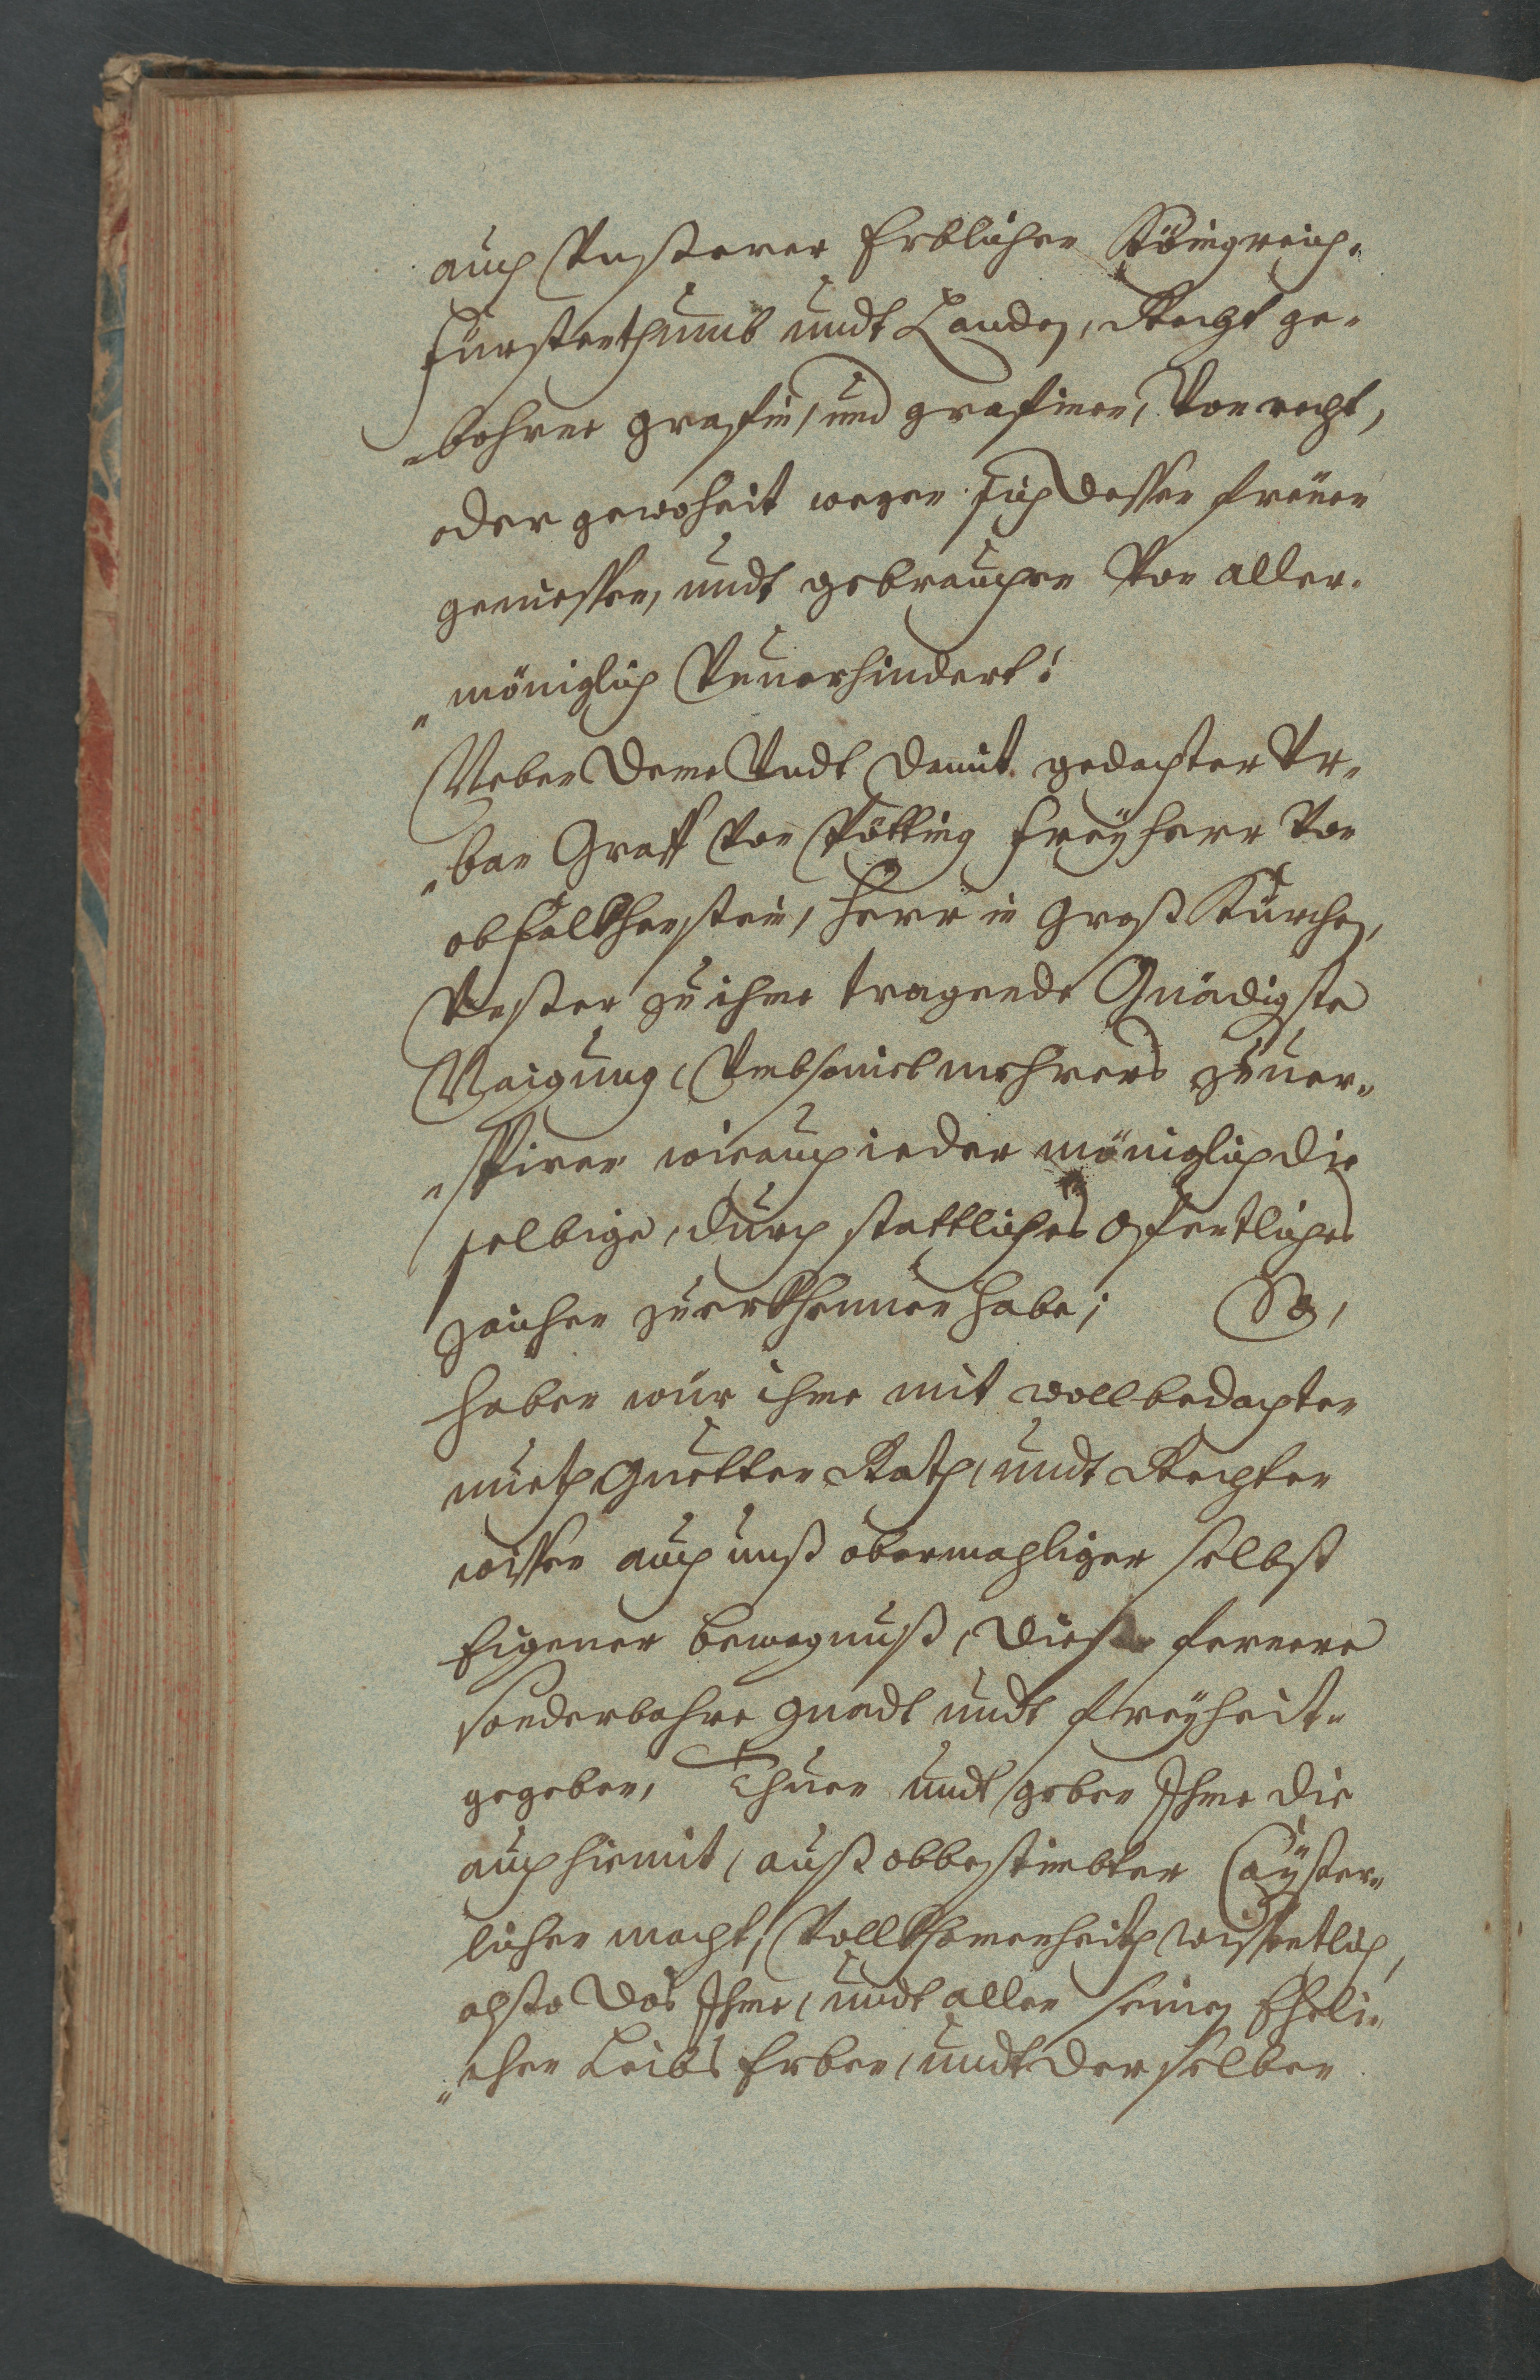 auch Vnsserer Erblichen Königreich-
Fürstenthumb undt Landen, Recht ge-
„bohrne grafen, und grafinen, Von recht,
oder gewoheit wegen sich dessen freüen
geniessen, undt gebrauchen Von aller-
„möniglich Vnuerhindert!
Neben deme Vndt damit gedachter Vr-
„ban Graff Von Pötting freyherr Von
obfalkhenstein, Herr in Groß Kürchen,
Vnsser zu ihme tragende Gnädigste
Naigung, Vmbsouiel mehrers zuuer-
„spiren wie auch ieder möniglich die
selbige, durch stattliches offentliches
zaichen zuerkhennen habe; So,
haben wür ihme mit wollbedachten
mueth Guetten Rath, undt Rechten
wissen auch auß obermahliger selbst
Eigener bewegnuß, diesse fernere
sonderbahre gnadt undt freyheit-
gegeben, Thuen undt geben Ihme die
auch hiemit, auß obbestimbter Cayßer-
licher macht, Vollkhomenheith wissentlich,
alsso das Ihme, undt allen seinen Eheli-
„chen Leibs Erben, undt derselben